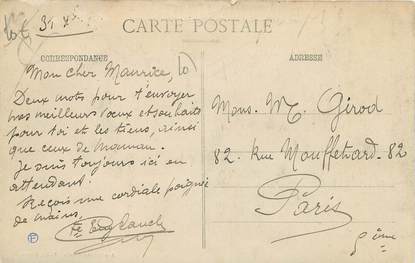 CARTE POSTALE
CORRESPONDANCE
ADRESSE
Mon cher Maurice,
Deux mots pour t'envoyer
mes meilleurs vœux et souhaits
pour toi et les tiens, ainsi
que ceux de Maman.
Je suis toujours ici en
attendant.
Reçois une cordiale poignée
de mains,
Mons. M. Girod
82. Rue Mouffetard. 82
Paris
5ème